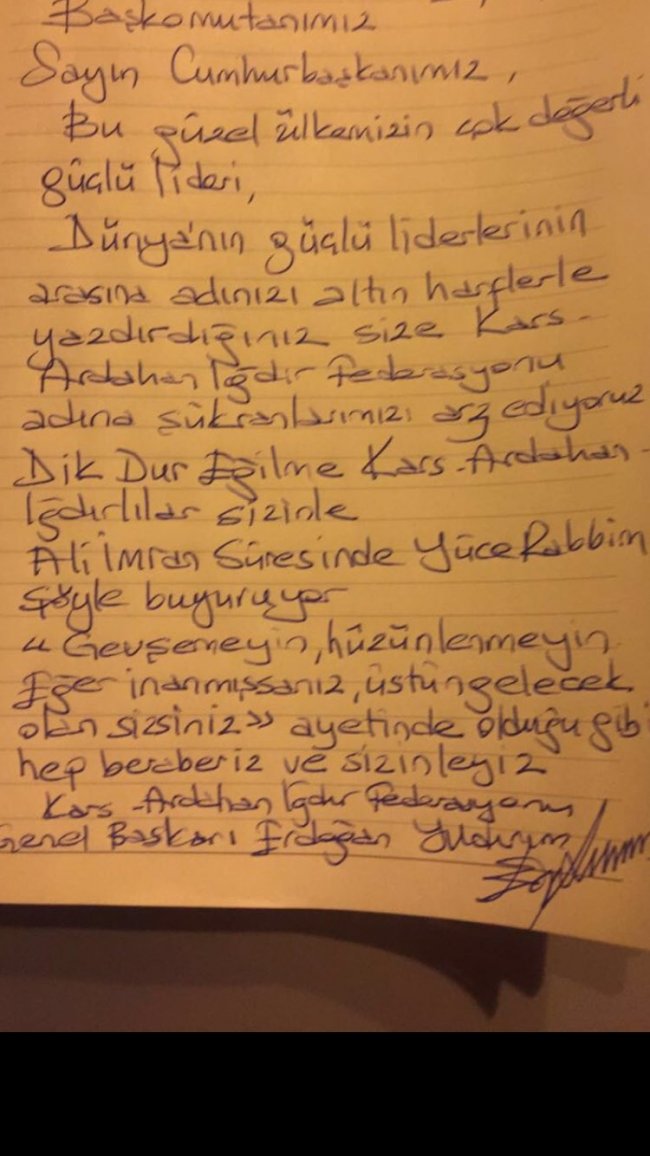 Başkomutanımız
Sayın Cumhurbaşkanımız,
Bu güzel ülkemizin çok değerli
güçlü lideri,
Dünya'nın güçlü liderlerinin
arasına adınızı altın harflerle
yazdırdığınız size Kars-
Ardahan Iğdır Federasyonu
adına şükranlarımızı arz ediyoruz
Dik Dur Eğilme Kars-Ardahan-
Iğdırlılar sizinle
Ali İmran Süresinde Yüce Rabbim
şöyle buyuruyor
"Gevşemeyin, hüzünlenmeyin
Eğer inanmışsanız, üstün gelecek
olan sizsiniz» ayetinde olduğu gibi
hep beraberiz ve sizinleyiz
Kars-Ardahan Iğdır Federasyonu
Genel Başkanı Erdoğan Yıldırım